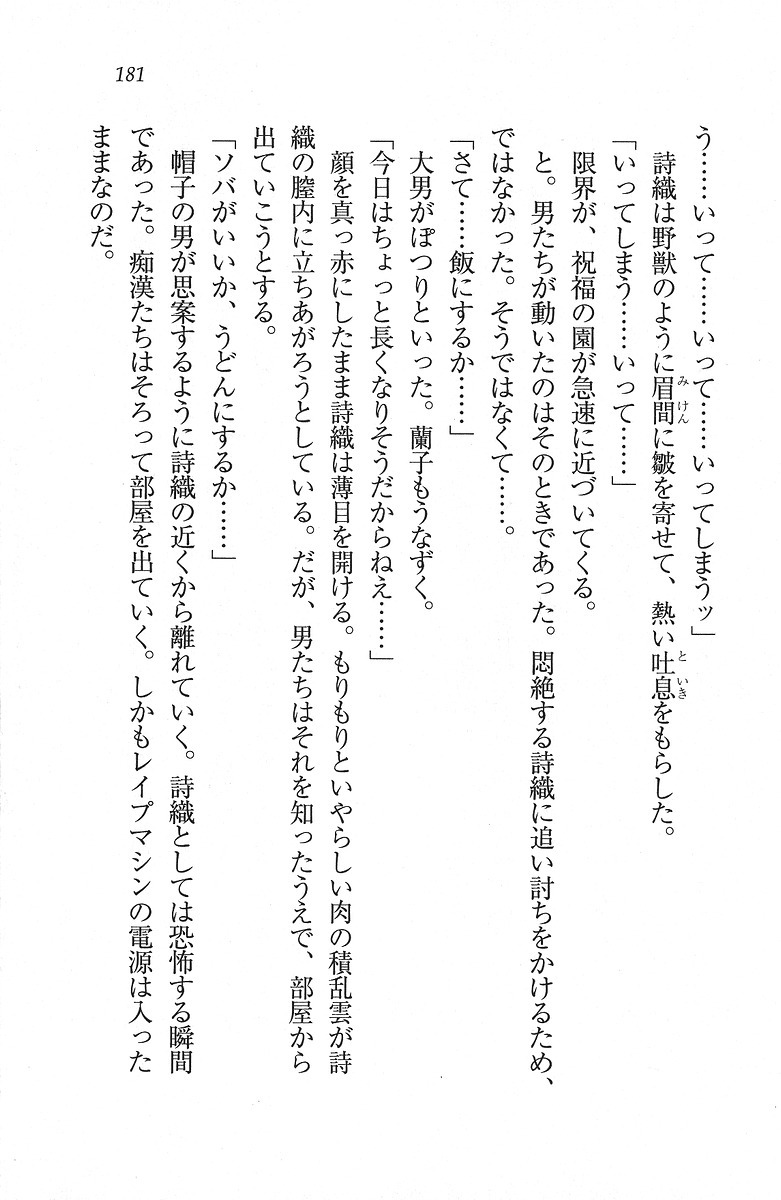 181
う……いって……いって……いってしまうッ」
詩織は野獣のように眉間に皺を寄せて、熱い吐息をもらした。
「いってしまう……いって……」
限界が、祝福の園が急速に近づいてくる。
と。男たちが動いたのはそのときであった。悶絶する詩織に追い討ちをかけるため、
ではなかった。そうではなくて……。
「さて……飯にするか……」
大男がぽつりといった。蘭子もうなずく。
「今日はちょっと長くなりそうだからねえ……」
顔を真っ赤にしたまま詩織は薄目を開ける。もりもりといやらしい肉の積乱雲が詩
織の膣内に立ちあがろうとしている。だが、男たちはそれを知ったうえで、部屋から
出ていこうとする。
「ソバがいいか、うどんにするか……」
帽子の男が思案するように詩織の近くから離れていく。詩織としては恐怖する瞬間
であった。痴漢たちはそろって部屋を出ていく。しかもレイプマシンの電源は入った
ままなのだ。